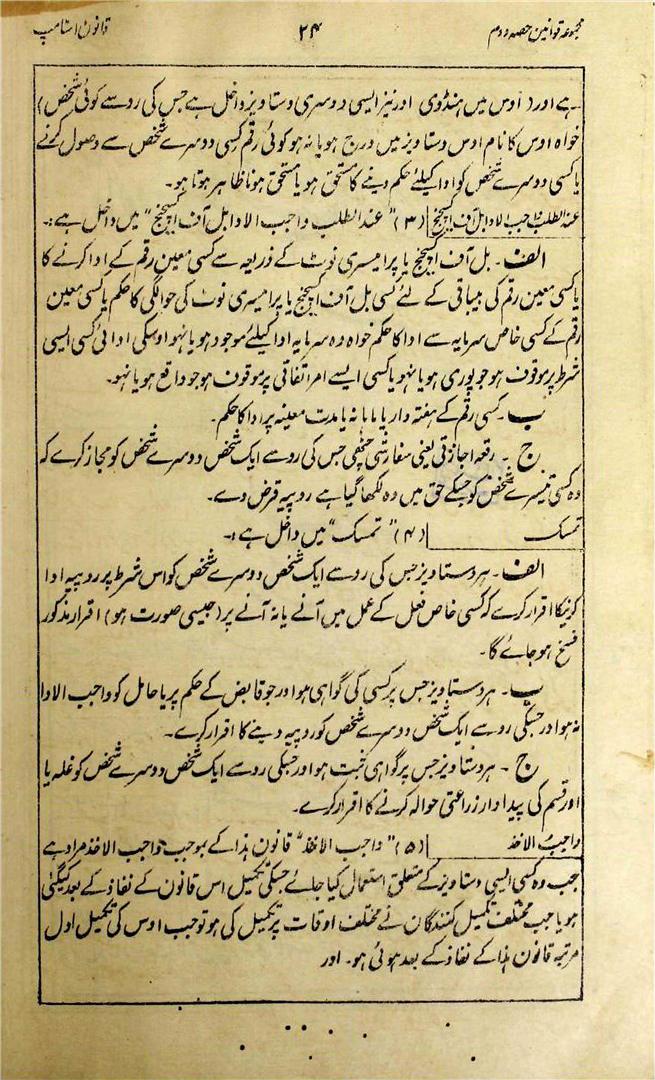 مجموعہ قوانین حصہ دوم
۲۴
قانون اسٹامپ
ہے اور (اوس میں ہنڈوی اور نیز ایسی دوسری دستاویز داخل ہے جس کی رو سے کوئی شخص)
خواہ اوس کا نام اوس دستاویز میں درج ہو یا نہ ہو کوئی رقم کسی دوسرے شخص سے وصول کرنے
یا کسی دوسرے شخص کو ادا کیلئے حکم دینے کا مستحق ہو یا مستحق ہونا ظاہر ہوتا ہو۔
عند الطلب واجب الادا بل آف ایکسچینج (۳) "عند الطلب واجب الادا بل آف ایکسچینج" میں داخل ہے:۔
الف۔ بل آف ایکسچینج یا پرامیسری نوٹ کے ذریعہ سے کسی معین رقم کے ادا کرنے کا
یا کسی معین رقم کی بیباقی کے لئے کسی بل آف ایکسچینج یا پرامیسری نوٹ کی حوالگی کا حکم یا کسی معین
رقم کے کسی خاص سرمایہ سے ادا کا حکم خواہ وہ سرمایہ ادا کیلئے موجود ہو یا نہو اوسکی ادائی کسی ایسی
شرط پر موقوف ہو جو پوری ہو یا نہو یا کسی ایسے امر اتفاقی پر موقوف ہو جو واقع ہو یا نہو۔
ب۔ کسی رقم کے ہفتہ وار یا ماہانہ یا مدت معینہ پر ادا کا حکم۔
ج ۔ رقعہ اجازتی یعنی سفارشی چٹھی جس کی رو سے ایک شخص دوسرے شخص کو مجاز کرے کہ
وہ کسی تیسرے شخص کو جسکے حق میں وہ لکھا گیا ہے روپیہ قرض دے۔
تمسک (۴) "تمسک" میں داخل ہے:۔
الف۔ ہر دستاویز جس کی رو سے ایک شخص دوسرے شخص کو اس شرط پر روپیہ ادا
کرنیکا اقرار کرے کہ کسی خاص فعل کے عمل میں آنے یا نہ آنے پر (جیسی صورت ہو) اقرار مذکور
فسخ ہو جائے گا۔
ب۔ ہر دستاویز جس پر کسی کی گواہی ہو اور جو قابض کے حکم پر یا حامل کو واجب الادا
نہ ہو اور جسکی رو سے ایک شخص دوسرے شخص کو روپیہ دینے کا اقرار کرے۔
ج ۔ ہر دستاویز جس پر گواہی ثبت ہو اور جسکی رو سے ایک شخص دوسرے شخص کو غلہ یا
اور قسم کی پیداوار زراعتی حوالہ کرنے کا اقرار کرے۔
واجب الاخذ (۵) "واجب الاخذ" قانون ہذا کے بموجب واجب الاخذ مراد ہے
جب وہ کسی ایسی دستاویز کے متعلق استعمال کیا جائے جسکی تکمیل اس قانون کے نفاذ کے بعد کیگئی
ہو یا جب مختلف تکمیل کنندگان نے مختلف اوقات پر تکمیل کی ہو تو جب اوس کی تکمیل اول
مرتبہ قانون ہذا کے نفاذ کے بعد ہوئی ہو۔ اور